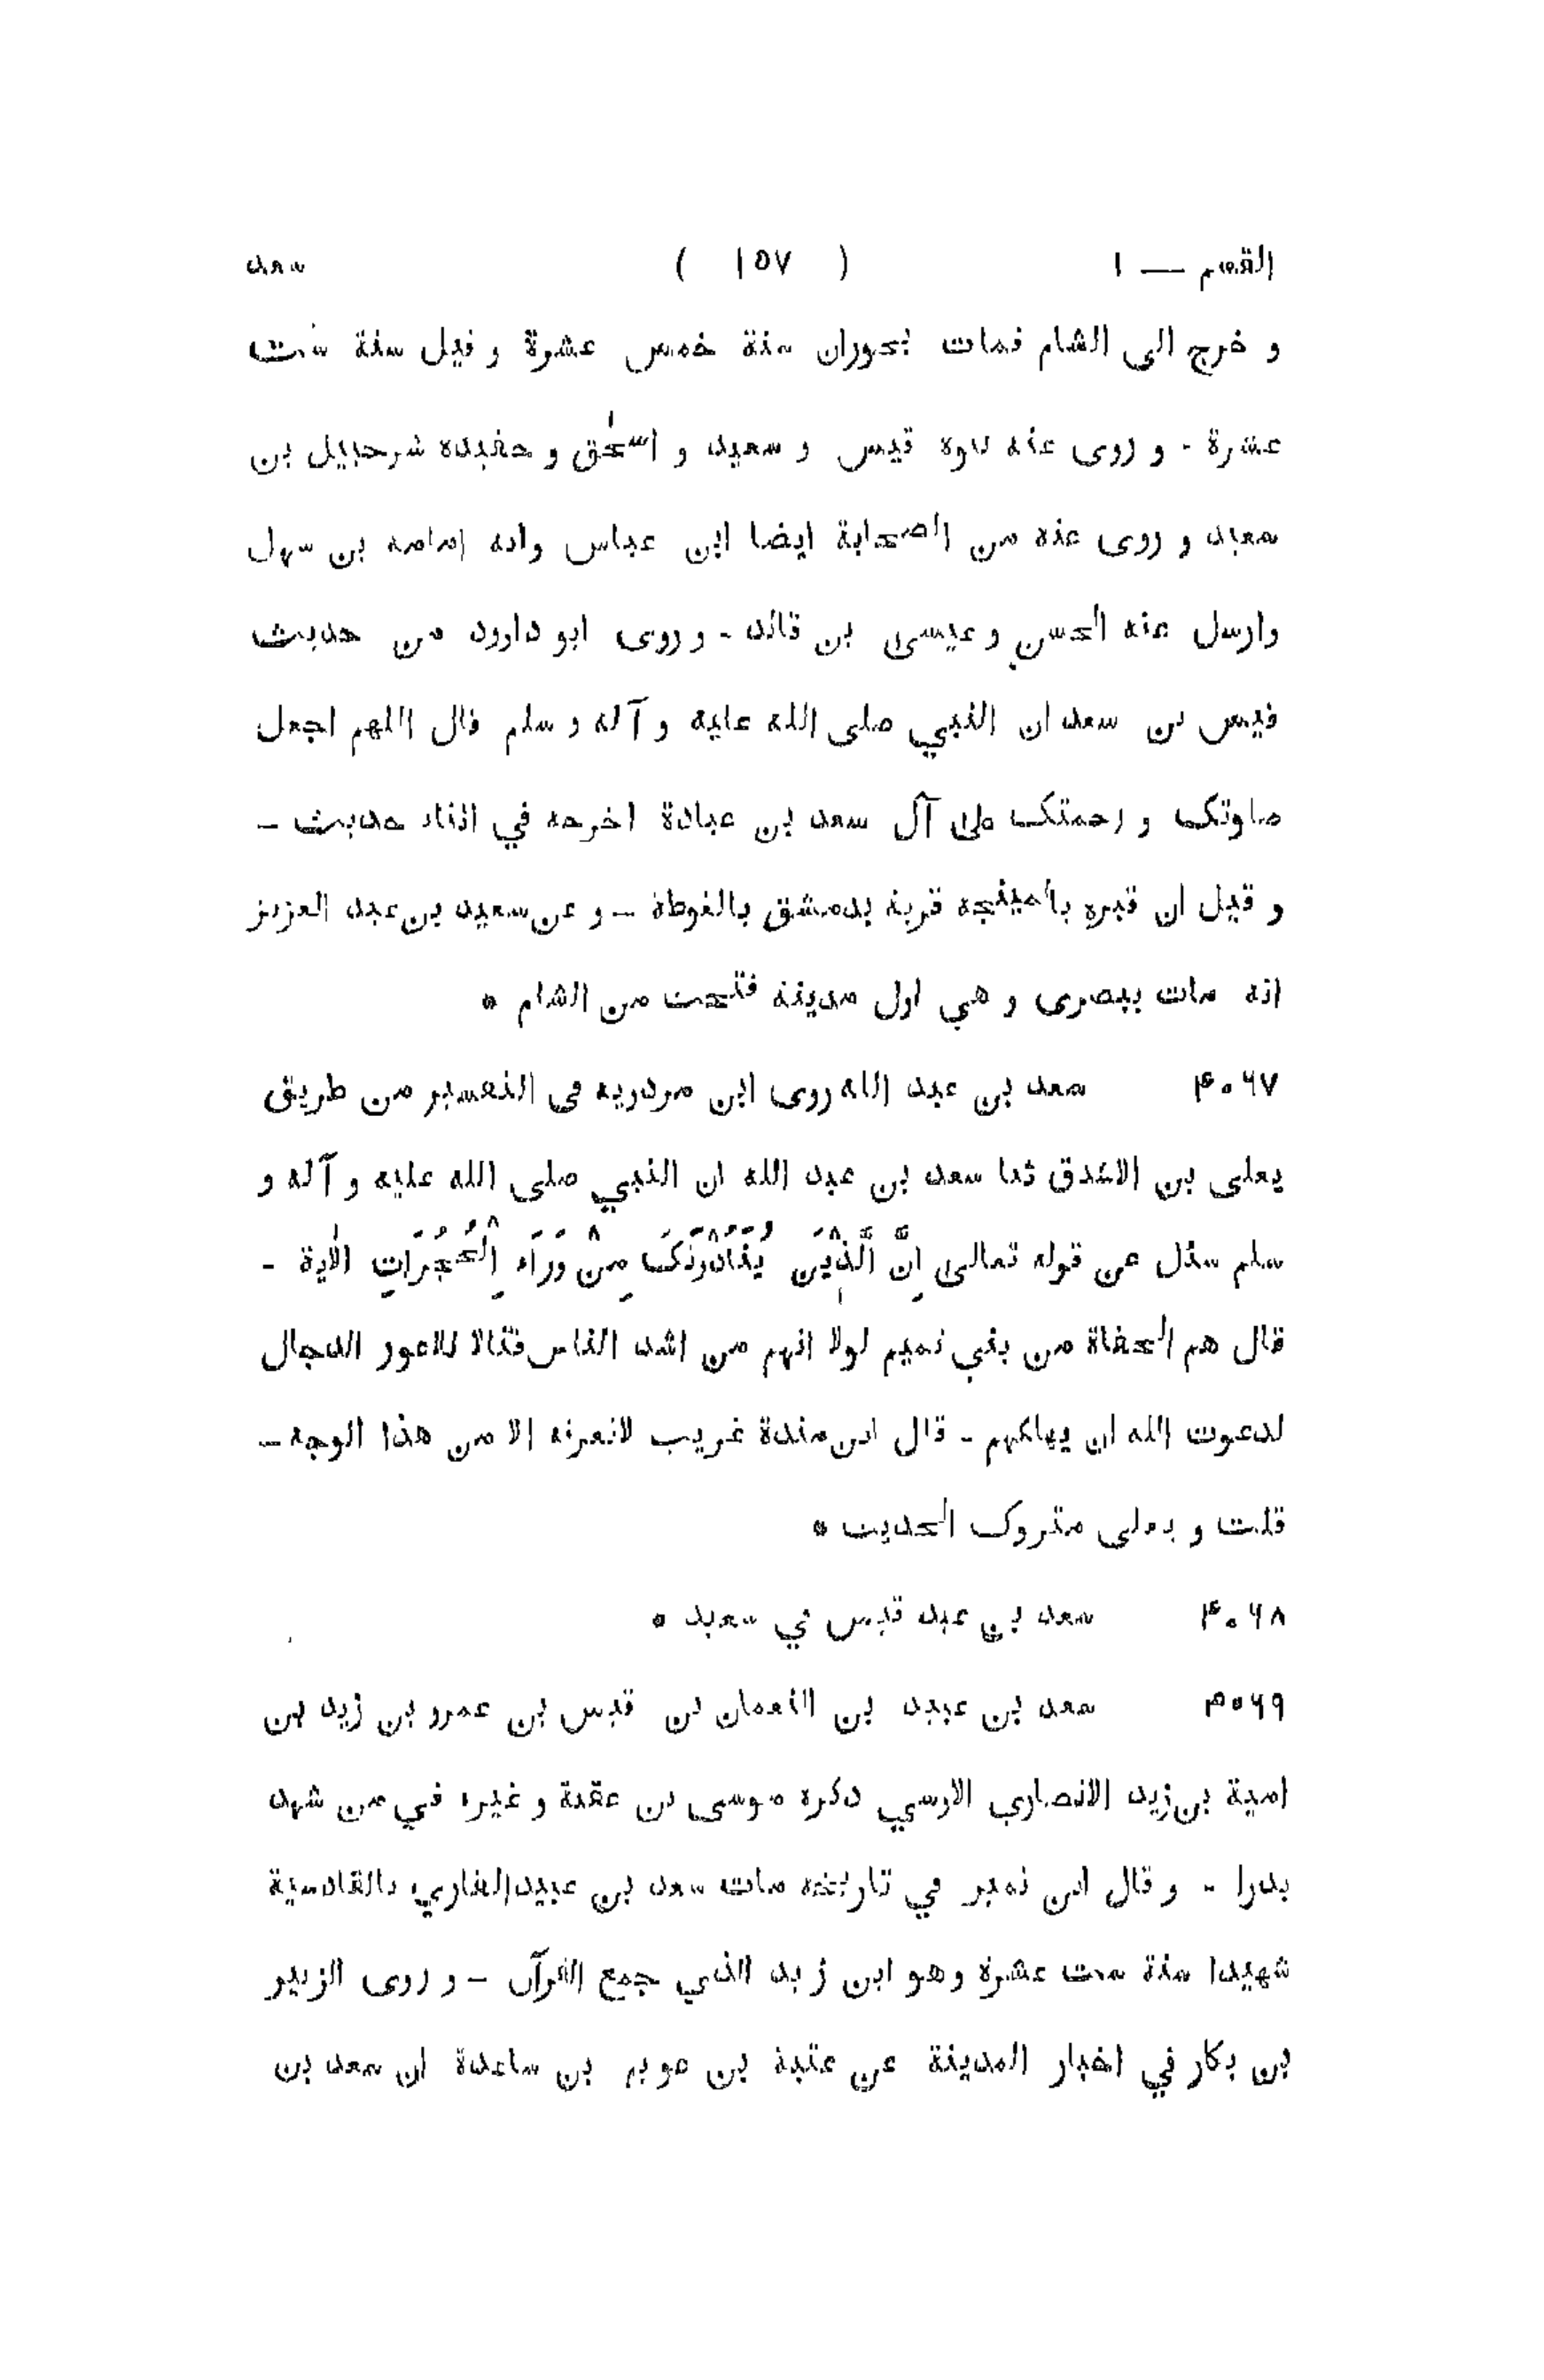 القسم — ١ ( ١٥٧ ) سعد
و خرج الى الشام فمات بحوران سنة خمس عشرة و قيل سنة ست
عشرة - و روى عنه بنوه قيس و سعيد و اسحٰق و حفيده شرحبيل بن
سعيد و روى عنه من الصحابة ايضا ابن عباس و امامه بن سهل
وارسل عنه الحسن و عيسى بن فائد - و روى ابو داود من حديث
قيس بن سعد ان النبي صلى الله عليه و آله و سلم قال اللهم اجعل
صلوتك و رحمتك على آل سعد بن عبادة اخرجه في اثناء حديث -
و قيل ان قبره بالمينحه قرية بدمشق بالغوطة - و عن سعيد بن عبد العزيز
انه مات ببصرى و هي اول مدينة فتحت من الشام *
۴۰۶۷ سعد بن عبد الله روى ابن مردويه في التفسير من طريق
يعلى بن الاشدق ثنا سعد بن عبد الله ان النبي صلى الله عليه و آله و
سلم سئل عن قوله تعالى اِنَّ الَّذِيْنَ يُنَادُوْنَكَ مِنْ وَرَاءِ الْحُجُرَاتِ الاٰية -
قال هم الحفاة من بني تميم لولا انهم من اشد الناس قتالا للاعور الدجال
لدعوت الله ان يهلكهم - قال ابن مندة غريب لانعرفه الا من هذا الوجه -
قلت و يعلى متروك الحديث *
۴۰۶۸ سعد بن عبد قيس في سعيد *
۴۰۶۹ سعد بن عبيد بن النعمان بن قيس بن عمرو بن زيد بن
امية بن زيد الانصاري الاوسي ذكره موسى بن عقبة و غيره في من شهد
بدرا - و قال ابن نمير في تاريخه مات سعد بن عبيد القاري بالقادسية
شهيدا سنة ست عشرة وهو ابن زيد الذي جمع القرآن - و روى الزبير
بن بكار في اخبار المدينة عن عتبة بن عويم بن ساعدة ان سعد بن